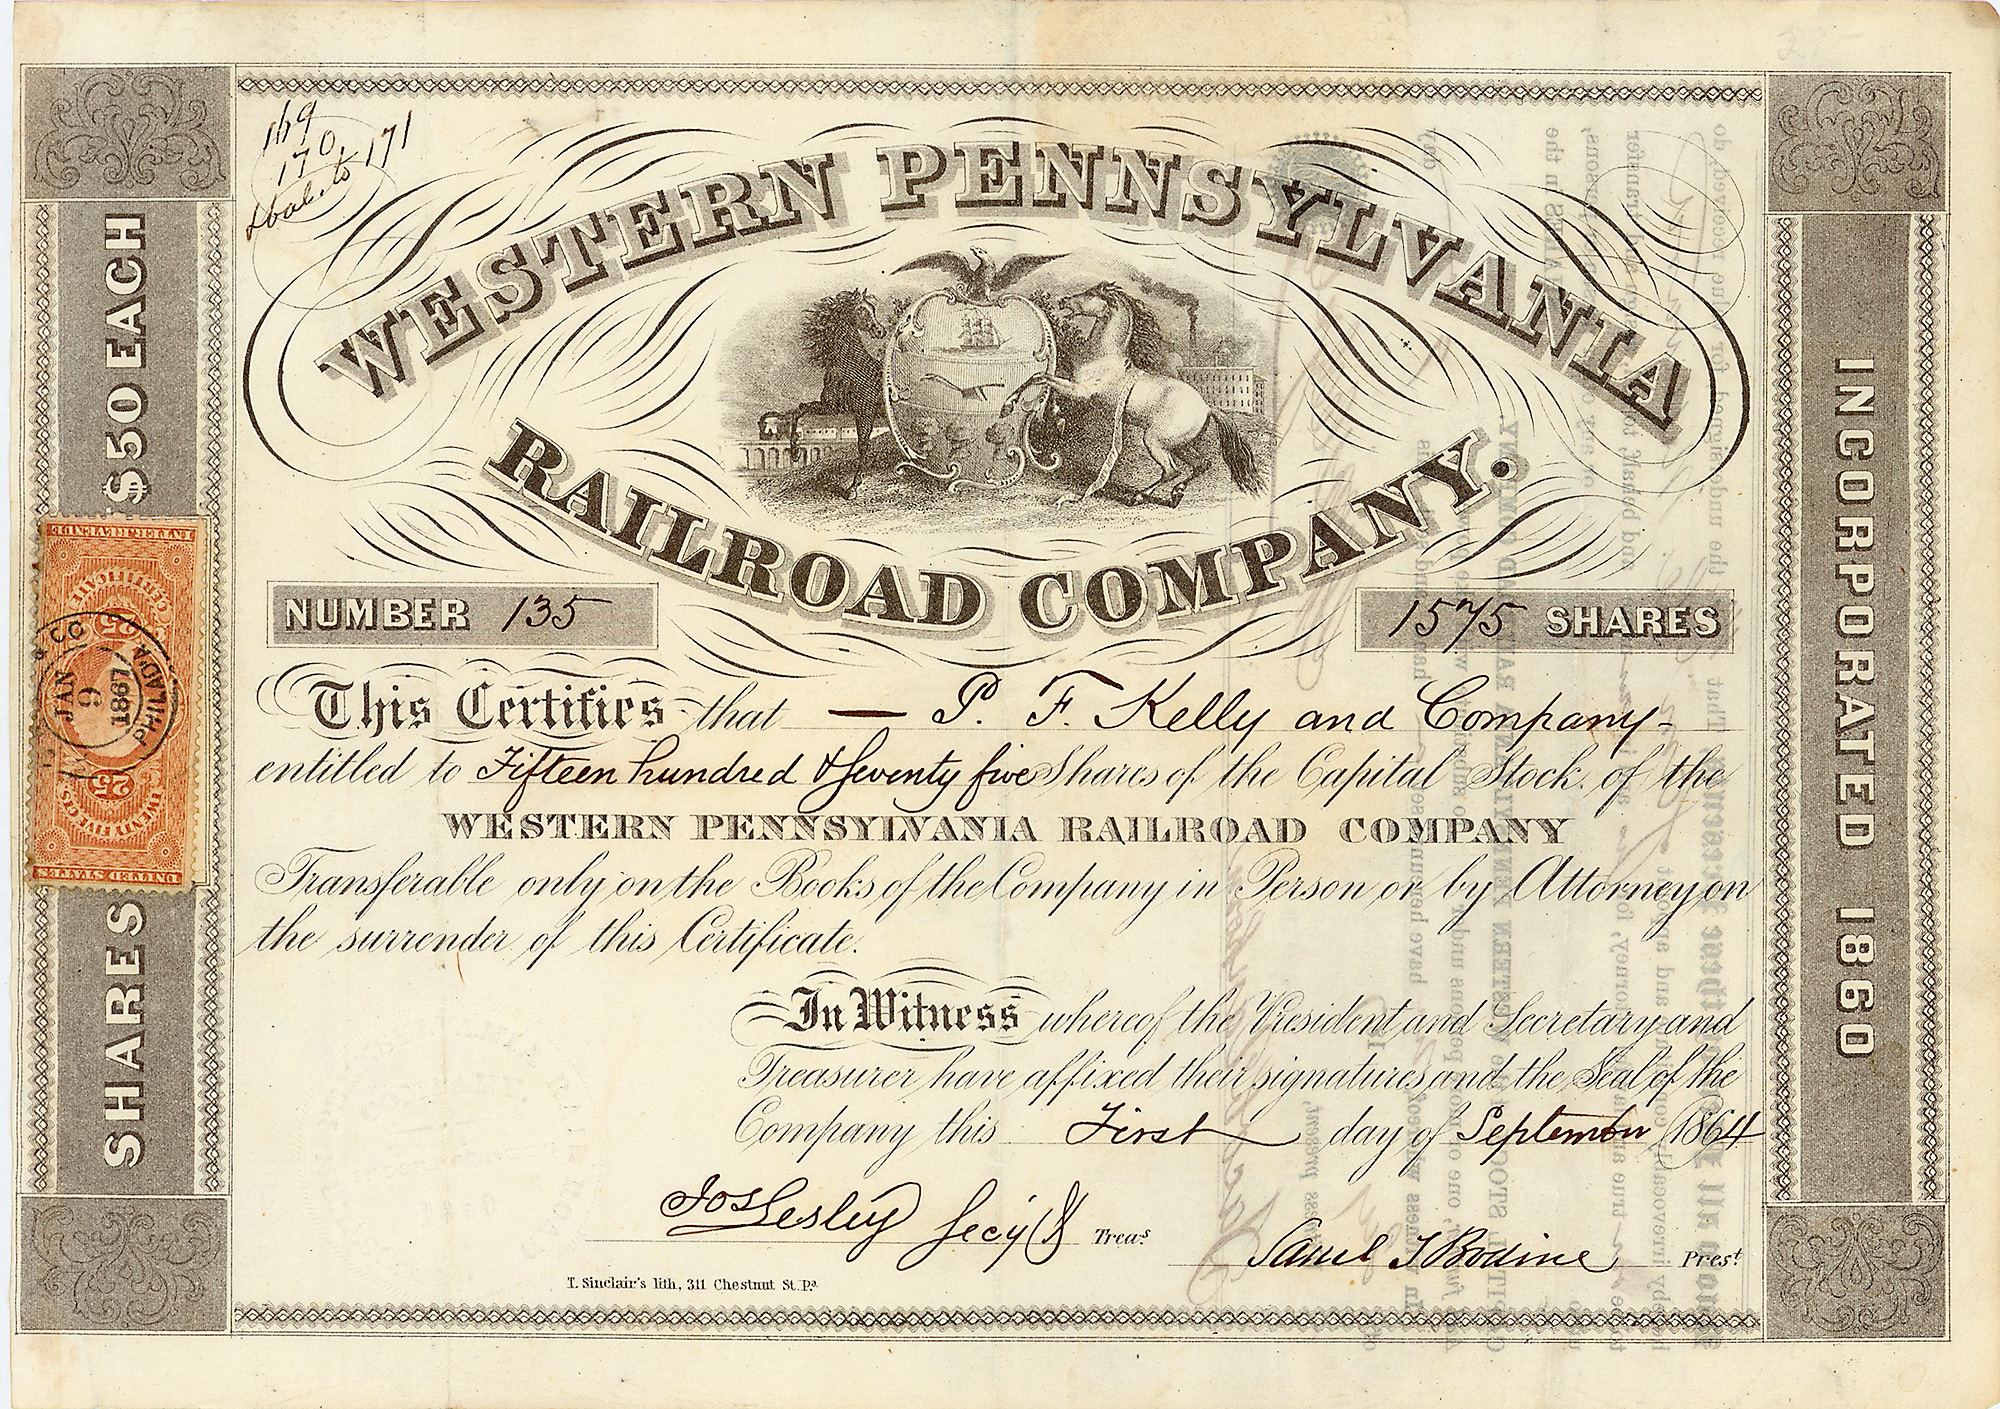 169
170, 171
WESTERN PENNSYLVANIA
RAILROAD COMPANY.
NUMBER 135
1575 SHARES
This Certifies that — P. F. Kelly and Company -
entitled to Fifteen hundred & Seventy five Shares of the Capital Stock of the
WESTERN PENNSYLVANIA RAILROAD COMPANY
Transferable only on the Books of the Company in Person or by Attorney on
the surrender of this Certificate.
In Witness whereof the President and Secretary and
Treasurer have affixed their signatures and the Seal of the
Company this First day of September 1864
Jos Lesley Secy & Treas
Saml T Bodine Prest
T. Sinclair's lith, 311 Chestnut St. Pa
SHARES $50 EACH
INCORPORATED 1860
INTER. REVENUE
CERTIFICATE
25 25
TWENTY FIVE CTS.
UNITED STATES
& CO
JAN
9
1867
PHILAD'A